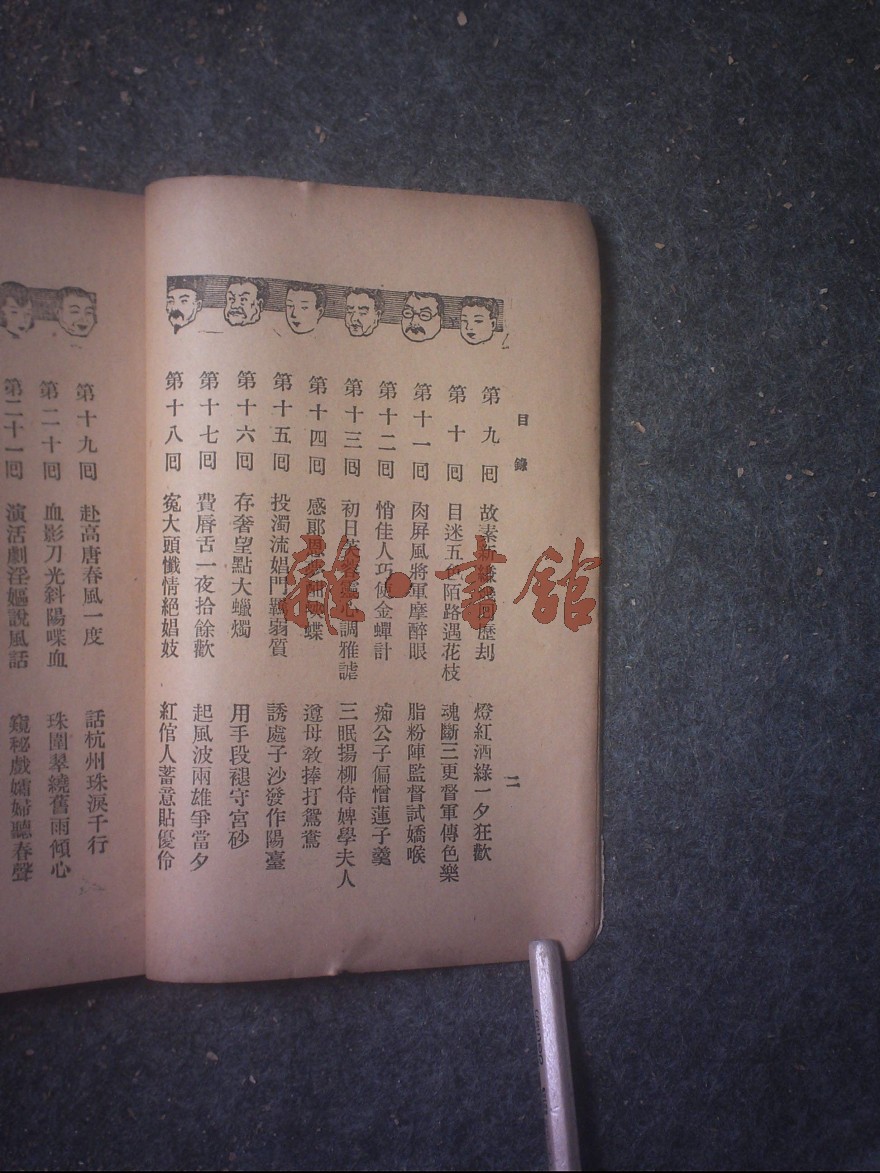 目錄
二
第九回 故素新縑幾回歷刼 燈紅酒綠一夕狂歡
第十回 目迷五色陌路遇花枝 魂斷三更督軍傳色樂
第十一回 肉屏風將軍摩醉眼 脂粉陣監督試嬌喉
第十二回 悄佳人巧使金蟬計 痴公子偏憎蓮子羹
第十三回 初日芙蓉 心調雅謔 三眠揚柳侍婢學夫人
第十四回 感耶恩 蝶 遵母敎捧打鴛鴦
第十五回 投濁流娼門羈弱質 誘處子沙發作陽臺
第十六回 存奢望點大蠟燭 用手段褪守宮砂
第十七回 費唇舌一夜拾餘歡 起風波兩雄爭當夕
第十八回 寃大頭懺情絕娼妓 紅倌人蓄意貼優伶
第十九回 赴高唐春風一度 話杭州珠淚千行
第二十回 血影刀光斜陽喋血 珠圍翠繞舊雨傾心
第二十一回 演活劇淫嫗說風話 窺秘戲孀婦聽春聲
雜·書館